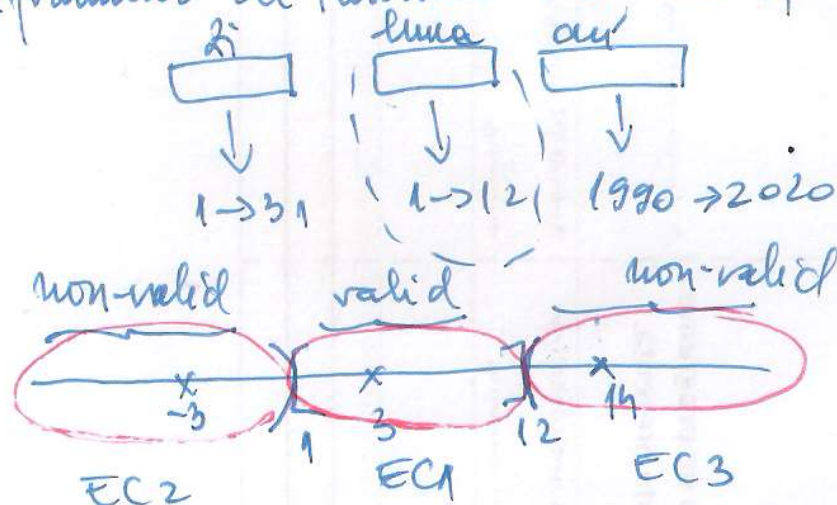 zi luna an
1->31 1->12 1990->2020
non-valid valid non-valid
-3 1 3 12 14
EC2 EC1 EC3